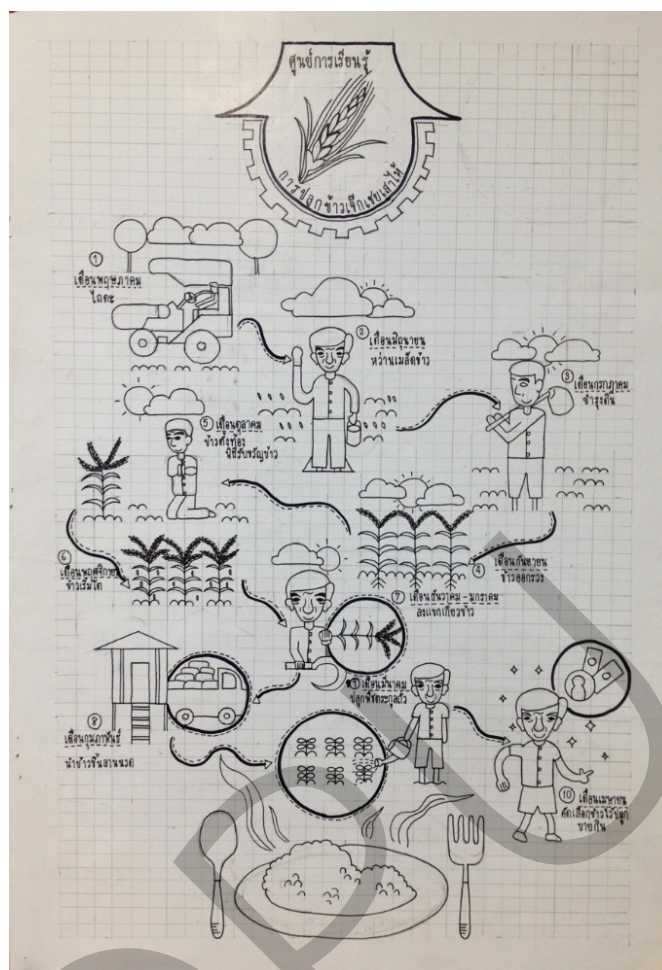 ศูนย์การเรียนรู้
การปลูกข้าวเจ๊กเชยเสาไห้
①
เดือนพฤษภาคม
ไถดะ
② เดือนมิถุนายน
หว่านเมล็ดข้าว
③ เดือนกรกฎาคม
บำรุงดิน
④ เดือนกันยายน
ข้าวออกรวง
⑤ เดือนตุลาคม
ข้าวตั้งท้อง
พิธีรับขวัญข้าว
⑥
เดือนพฤศจิกายน
ข้าวเริ่มโต
⑦ เดือนธันวาคม - มกราคม
ลงแขกเกี่ยวข้าว
⑧
เดือนกุมภาพันธ์
นำข้าวขึ้นลานนวด
เดือนมีนาคม
ปลูกพืชตระกูลถั่ว
⑩ เดือนเมษายน
คัดเลือกข้าวไว้ปลูก
ขายกิน
DPU